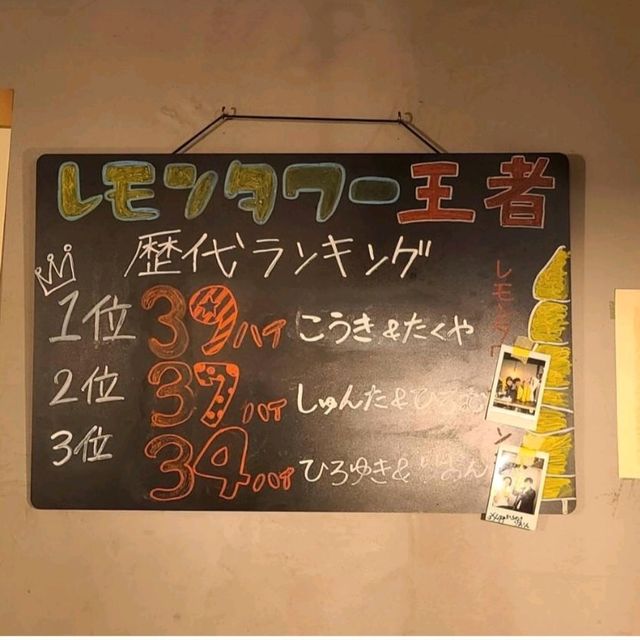 レモンタワー王者
歴代ランキング
1位 39ハイ こうき&たくや
2位 37ハイ しゅんた&
3位 34ハイ ひろゆき&
レモンタワ